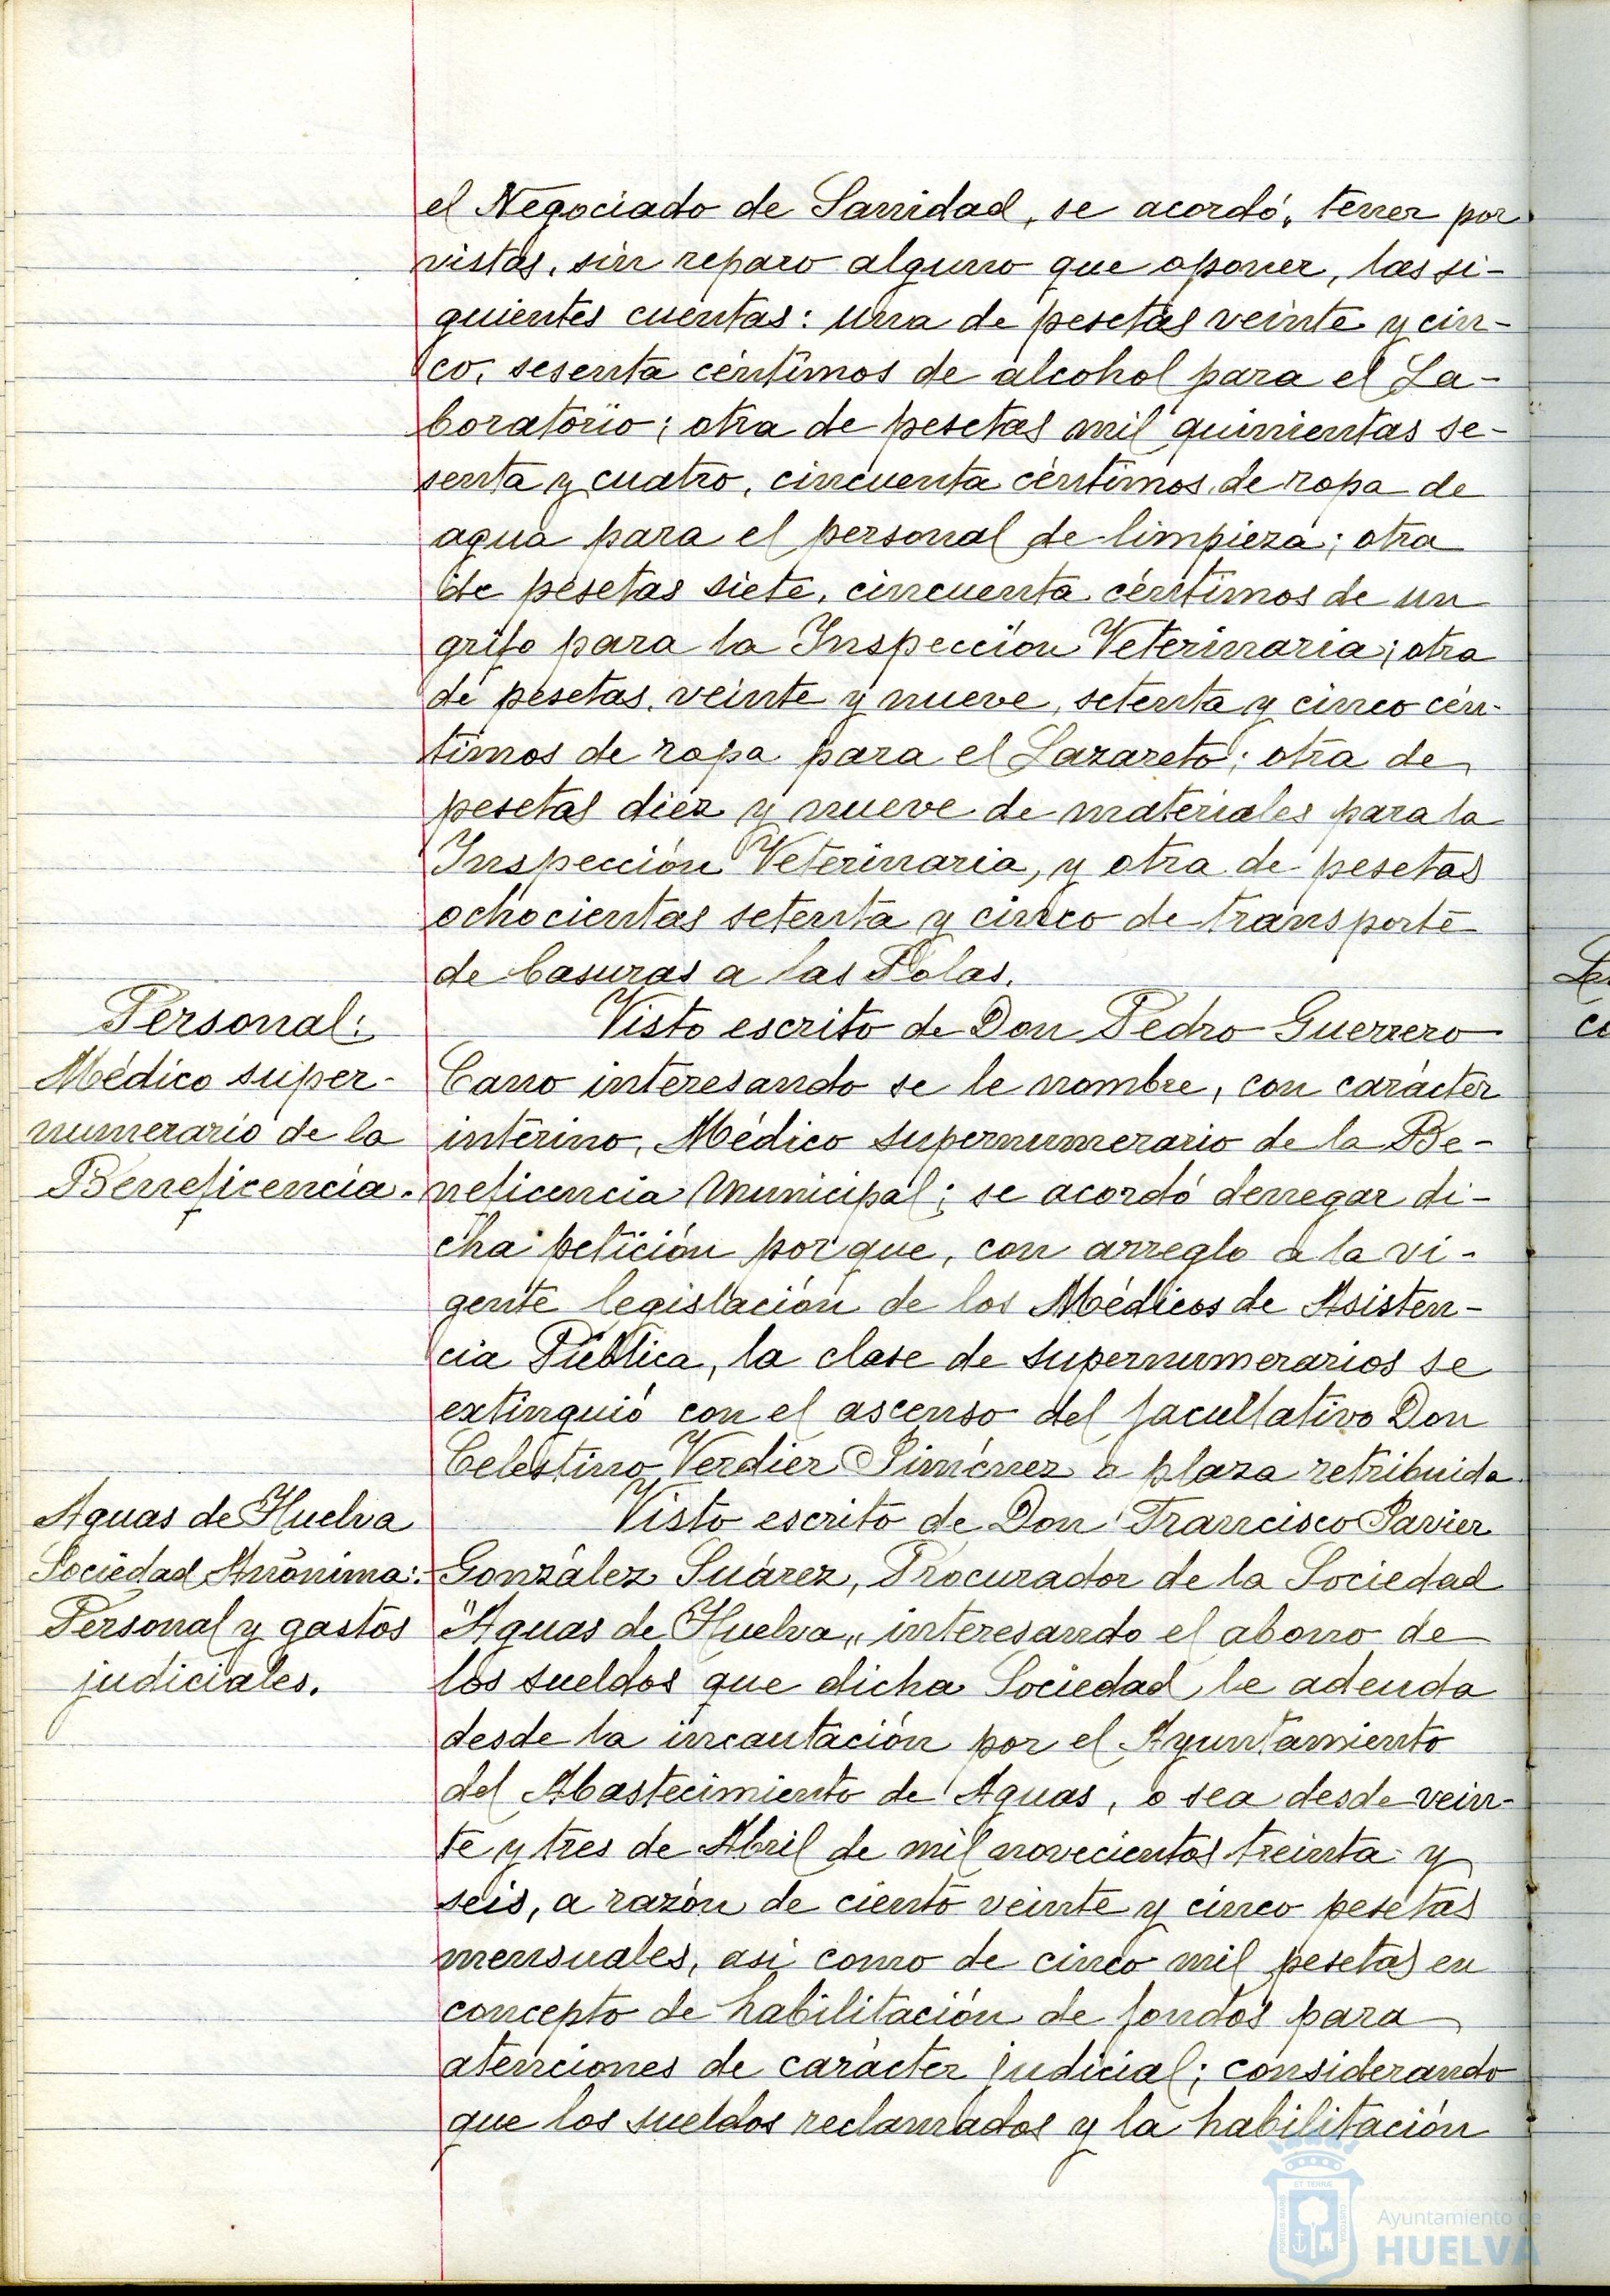 el Negociado de Sanidad, se acordó, tener por
vistas, sin reparo alguno que oponer, las si-
guientes cuentas: una de pesetas veinte y cin-
co, sesenta céntimos de alcohol para el La-
boratorio; otra de pesetas mil quinientas se-
senta y cuatro, cincuenta céntimos, de ropa de
agua para el personal de limpieza; otra
de pesetas siete, cincuenta céntimos de un
grifo para la Inspección Veterinaria; otra
de pesetas, veinte y nueve, setenta y cinco cén-
timos de ropa para el Lazareto; otra de
pesetas diez y nueve de materiales para la
Inspección Veterinaria, y otra de pesetas
ochocientas setenta y cinco de transporte
de basuras a las Polas.
Personal:
Médico super-
numerario de la
Beneficencia.
Visto escrito de Don Pedro Guerrero
Cano interesando se le nombre, con carácter
interino, Médico supernumerario de la Be-
neficencia Municipal; se acordó denegar di-
cha petición por que, con arreglo a la vi-
gente legislación de los Médicos de Asisten-
cia Pública, la clase de supernumerarios se
extinguió con el ascenso del facultativo Don
Celestino Verdier Jiménez a plaza retribuida.
Aguas de Huelva
Sociedad Anónima:
Personal y gastos
judiciales.
Visto escrito de Don Francisco Javier
González Suárez, Procurador de la Sociedad
"Aguas de Huelva" interesando el abono de
los sueldos que dicha Sociedad le adeuda
desde la incautación por el Ayuntamiento
del Abastecimiento de Aguas, o sea desde vein-
te y tres de Abril de mil novecientos treinta y
seis, a razón de ciento veinte y cinco pesetas
mensuales, asi como de cinco mil pesetas en
concepto de habilitación de fondos para
atenciones de carácter judicial; considerando
que los sueldos reclamados y la habilitación
Ayuntamiento de
HUELVA